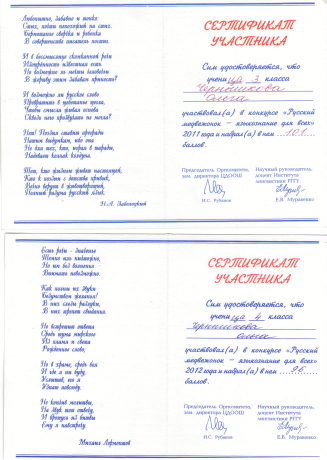 Любопытно, забавно и тонко:
Стих, почти непохожий на стих.
Бормотанье сверчка и ребенка
В совершенстве писатель постиг.
И в бессмыслице скомканной речи
Изощренность известная есть.
Но возможно ль мечты человечьи
В жертву этим забавам принесть?
И возможно ли русское слово
Превратить в щебетанье щегла,
Чтобы смысла живая основа
Сквозь него прозвучать не могла?
Нет! Поэзия ставит преграды
Нашим выдумкам, ибо она
Не для тех, кто, играя в шарады,
Надевает колпак колдуна.
Тот, кто жизнью живет настоящей,
Кто к поэзии с детства привык,
Вечно верует в животворящий,
Полный разума русский язык.
Н.А. Заболоцкий
СЕРТИФИКАТ
УЧАСТНИКА
Сим удостоверяется, что
учени ца 3 класса
Чернышкова
Ольга
участвовал(а) в конкурсе «Русский
медвежонок – языкознание для всех»
2011 года и набрал(а) в нем 101
баллов.
Председатель Оргкомитета,
зам. директора ЦДООШ
И.С. Рубанов
Научный руководитель,
доцент Института
лингвистики РГГУ
Е.В. Муравенко
Есть речи - значенье
Темно иль ничтожно,
Но им без волненья
Внимать невозможно.
Как полны их звуки
Безумством желанья!
В них слезы разлуки,
В них трепет свиданья.
Не встретит ответа
Средь шума мирского
Из пламя и света
Рожденное слово;
Но в храме, средь боя
И где я ни буду,
Услышав, его я
Узнаю повсюду.
Не кончив молитвы,
На звук тот отвечу,
И брошусь из битвы
Ему я навстречу.
Михаил Лермонтов
СЕРТИФИКАТ
УЧАСТНИКА
Сим удостоверяется, что
учени ца 4 класса
Чернышкова
участвовал(а) в конкурсе «Русский
медвежонок – языкознание для всех»
2012 года и набрал(а) в нем 96
баллов.
Председатель Оргкомитета,
зам. директора ЦДООШ
И.С. Рубанов
Научный руководитель,
доцент Института
лингвистики РГГУ
Е.В. Муравенко